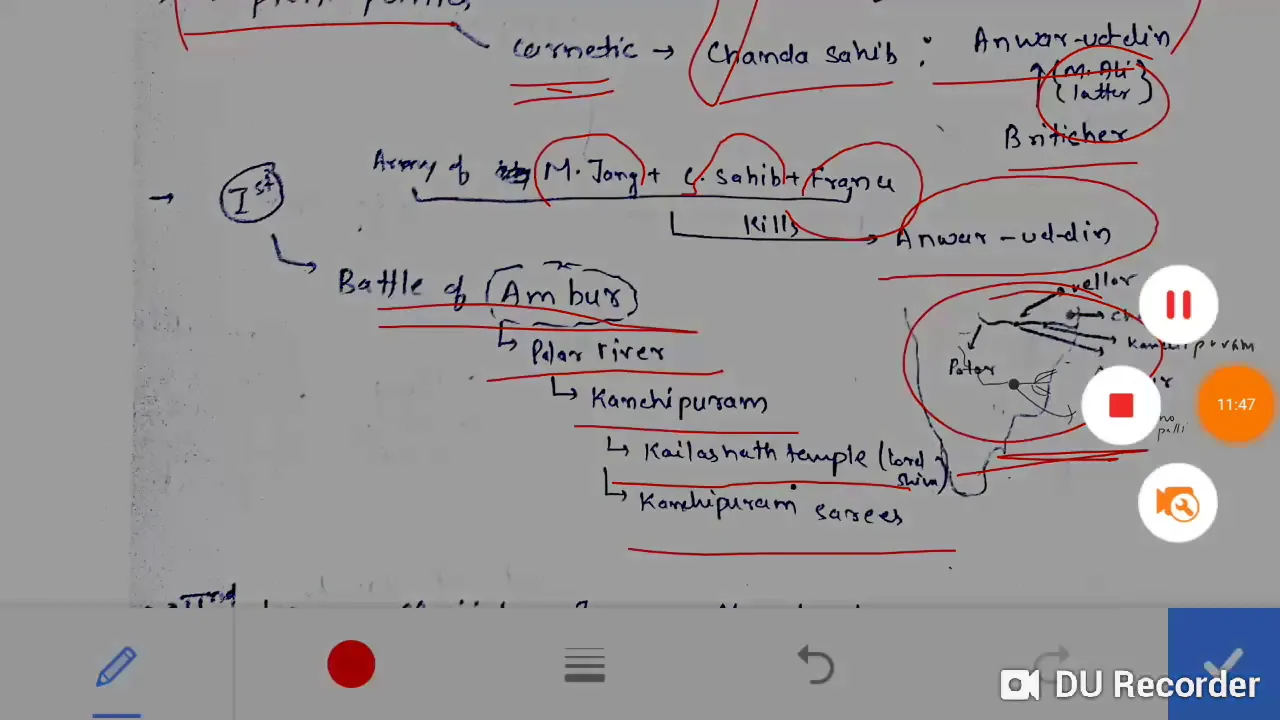 carnetic → Chanda sahib : Anwar-ud-din
(M. Ali)
(latter)
Britisher
→ Ist Array of M. Jang + C. sahib + France
Kills → Anwar-ud-din
Battle of Ambur
Palar river
Kanchipuram
Kailashath temple (Lord shiva)
Kanchipuram sarees
vellor
Kanchipuram
Palar
palli
11:47
DU Recorder